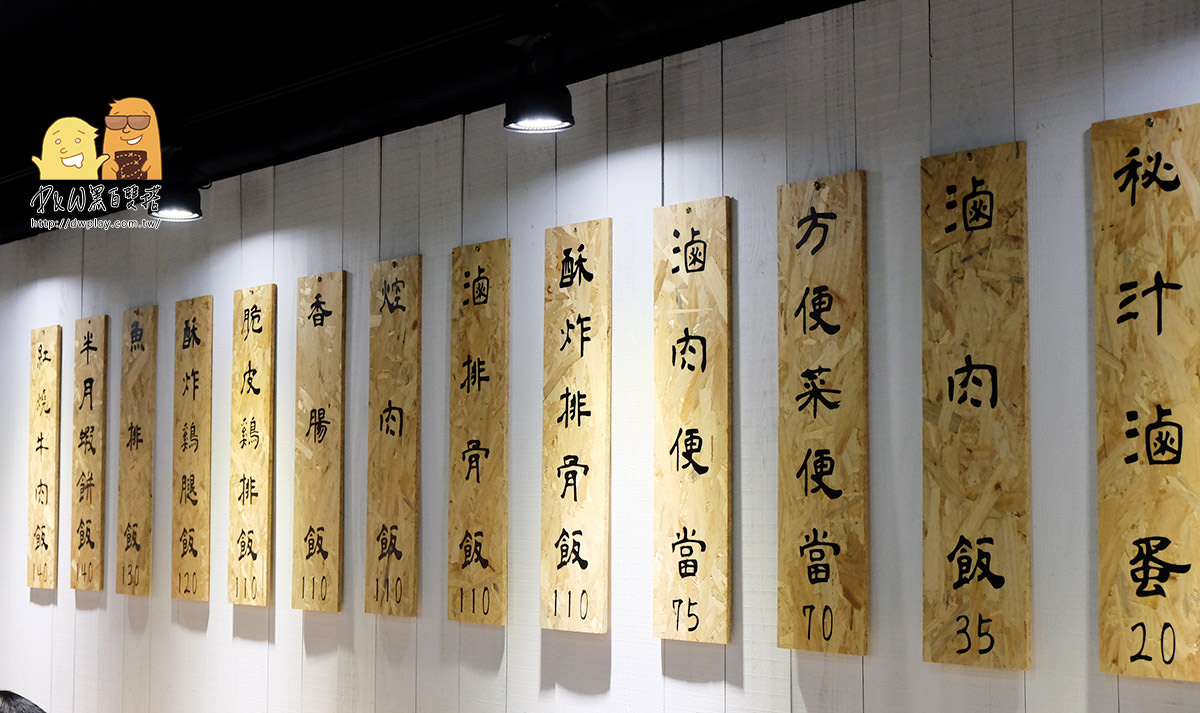 秘汁滷蛋 20
滷肉飯 35
方便菜便當 70
滷肉便當 75
酥炸排骨飯 110
滷排骨飯 110
焢肉飯 110
香腸飯 110
脆皮鷄排飯 110
酥炸鷄腿飯 120
魚排飯 130
半月蝦餅飯 140
紅燒牛肉飯 140
黑白雙搭
http://dwplay.com.tw/